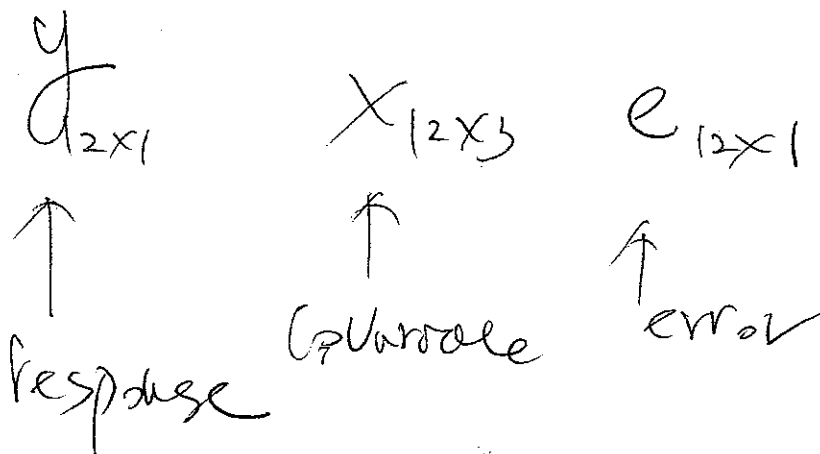 y₁₂ₓ₁ X₁₂ₓ₃ e₁₂ₓ₁
↑ ↑ ↑
response Covariate error